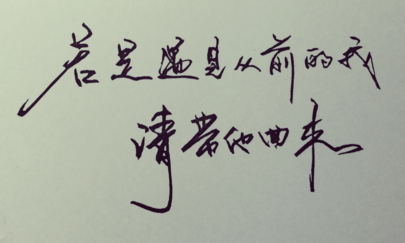 若是遇见从前的我
请带他回来